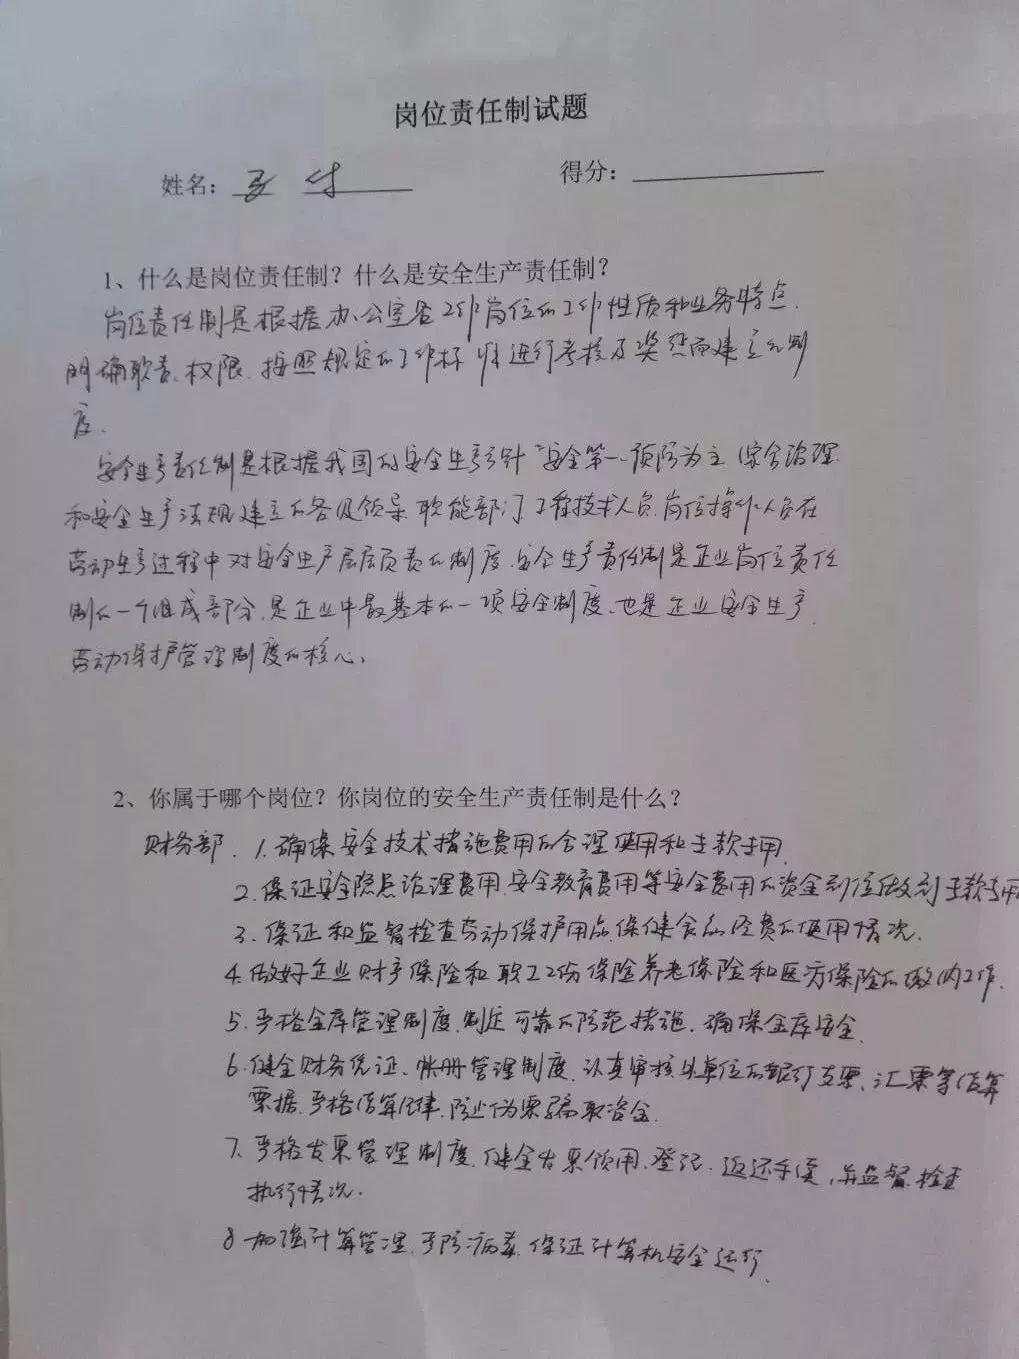 岗位责任制试题
姓名： 得分：
1、什么是岗位责任制？什么是安全生产责任制？
岗位责任制是根据办公室各工作岗位的工作性质和业务特点,
明确职责、权限、按照规定的工作标准进行考核及奖惩而建立的制
度.
安全生产责任制是根据我国的安全生产方针“安全第一、预防为主 综合治理
和安全生产法规建立的各级领导 职能部门 工程技术人员、岗位操作人员在
劳动生产过程中对安全生产层层负责的制度.安全生产责任制是企业岗位责任
制的一个组成部分,是企业中最基本的一项安全制度、也是企业安全生产
劳动保护管理制度的核心、
2、你属于哪个岗位？你岗位的安全生产责任制是什么？
财务部. 1.确保安全技术措施费用的合理使用和专款专用.
2.保证安全隐患治理费用、安全教育费用等安全费用的资金到位做到专款专用
3、保证和监督检查劳动保护用品、保健食品经费的使用情况.
4.做好企业财产保险和职工工伤保险养老保险和医疗保险的缴纳工作.
5、严格金库管理制度、制定可靠的防范措施、确保金库安全.
6.健全财务凭证、帐册管理制度、认真审核外单位的银行支票、汇票等结算
票据、严格结算纪律、防止伪票骗取资金.
7、严格发票管理制度、健全发票领用、登记、返还手续,并监督、检查
执行情况.
8 加强计算管理、予防病毒、保证计算机安全运行、